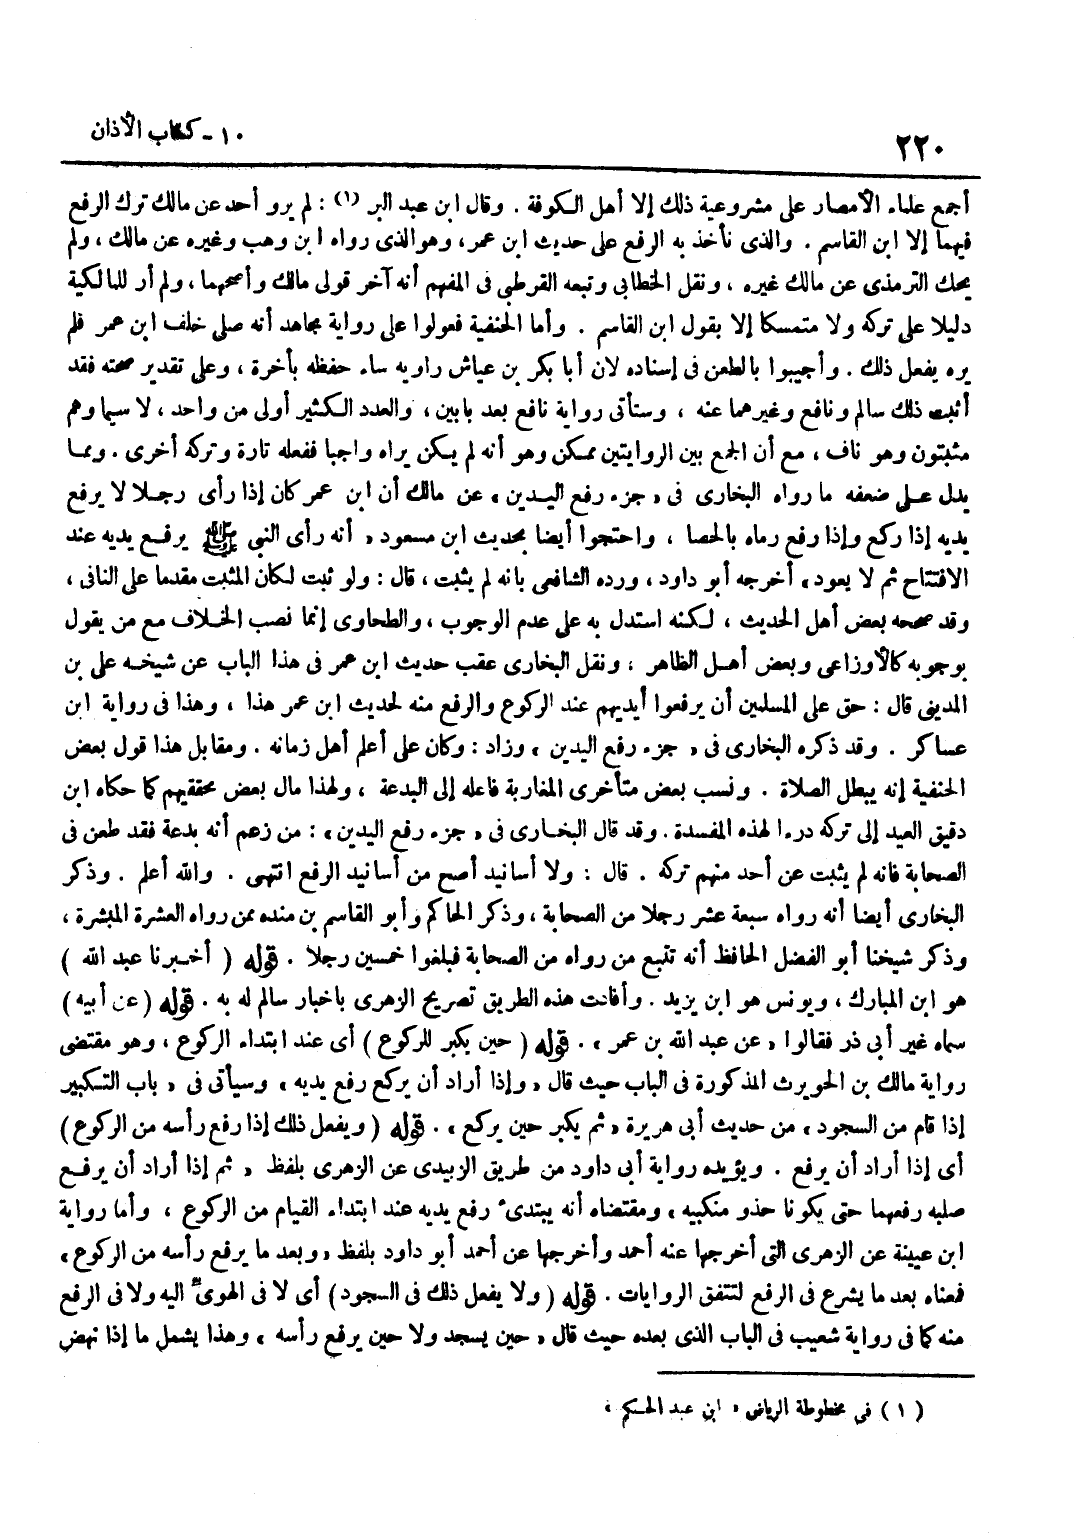 ٢٢٠
١٠ - كتاب الأذان
أجمع علماء الأمصار على مشروعية ذلك إلا أهل الكوفة . وقال ابن عبد البر (١) : لم يرو أحد عن مالك ترك الرفع
فيهما إلا ابن القاسم . والذى نأخذ به الرفع على حديث ابن عمر ، وهو الذى رواه ابن وهب وغيره عن مالك ، ولم
يحك الترمذى عن مالك غيره ، ونقل الخطابى وتبعه القرطبى فى المفهم أنه آخر قولى مالك وأصحهما ، ولم أر للمالكية
دليلا على تركه ولا متمسكا إلا بقول ابن القاسم . وأما الحنفية فعولوا على رواية مجاهد أنه صلى خلف ابن عمر فلم
يره يفعل ذلك . وأجيبوا بالطعن فى إسناده لان أبا بكر بن عياش راويه ساء حفظه بأخرة ، وعلى تقدير صحته فقد
أثبت ذلك سالم ونافع وغيرهما عنه ، وستأتى رواية نافع بعد بابين ، والعدد الكثير أولى من واحد ، لا سيما وهم
مثبتون وهو ناف ، مع أن الجمع بين الروايتين ممكن وهو أنه لم يكن يراه واجبا ففعله تارة وتركه أخرى . ومما
يدل على ضعفه ما رواه البخارى فى « جزء رفع اليدين » عن مالك أن ابن عمر كان إذا رأى رجلا لا يرفع
يديه إذا ركع وإذا رفع رماه بالحصا ، واحتجوا أيضا بحديث ابن مسعود « أنه رأى النبى ﷺ يرفع يديه عند
الافتتاح ثم لا يعود » أخرجه أبو داود ، ورده الشافعى بانه لم يثبت ، قال : ولو ثبت لكان المثبت مقدما على النافى ،
وقد صححه بعض أهل الحديث ، لكنه استدل به على عدم الوجوب ، والطحاوى إنما نصب الخلاف مع من يقول
بوجوبه كالأوزاعى وبعض أهل الظاهر ، ونقل البخارى عقب حديث ابن عمر فى هذا الباب عن شيخه على بن
المدينى قال : حق على المسلمين أن يرفعوا أيديهم عند الركوع والرفع منه لحديث ابن عمر هذا ، وهذا فى رواية ابن
عساكر . وقد ذكره البخارى فى « جزء رفع اليدين » وزاد : وكان على أعلم أهل زمانه . ومقابل هذا قول بعض
الحنفية إنه يبطل الصلاة . ونسب بعض متأخرى المغاربة فاعله إلى البدعة ، ولهذا مال بعض محققيهم كما حكاه ابن
دقيق العيد إلى تركه درءا لهذه المفسدة . وقد قال البخارى فى « جزء رفع اليدين » : من زعم أنه بدعة فقد طعن فى
الصحابة فانه لم يثبت عن أحد منهم تركه . قال : ولا أسانيد أصح من أسانيد الرفع انتهى . والله أعلم . وذكر
البخارى أيضا أنه رواه سبعة عشر رجلا من الصحابة ، وذكر الحاكم وأبو القاسم بن منده ممن رواه العشرة المبشرة ،
وذكر شيخنا أبو الفضل الحافظ أنه تتبع من رواه من الصحابة فبلغوا خمسين رجلا . قوله ( أخبرنا عبد الله )
هو ابن المبارك ، ويونس هو ابن يزيد . وأفادت هذه الطريق تصريح الزهرى باخبار سالم له به . قوله ( عن أبيه )
سماه غير أبى ذر فقالوا « عن عبد الله بن عمر » . قوله ( حين يكبر للركوع ) أى عند ابتداء الركوع ، وهو مقتضى
رواية مالك بن الحويرث المذكورة فى الباب حيث قال « وإذا أراد أن يركع رفع يديه » وسيأتى فى « باب التكبير
إذا قام من السجود » من حديث أبى هريرة « ثم يكبر حين يركع » . قوله ( ويفعل ذلك إذا رفع رأسه من الركوع )
أى إذا أراد أن يرفع . ويؤيده رواية أبى داود من طريق الزبيدى عن الزهرى بلفظ « ثم إذا أراد أن يرفع
صلبه رفعهما حتى يكونا حذو منكبيه » ومقتضاه أنه يبتدىء رفع يديه عند ابتداء القيام من الركوع ، وأما رواية
ابن عيينة عن الزهرى التى أخرجها عنه أحمد وأخرجها عن أحمد أبو داود بلفظ « وبعد ما يرفع رأسه من الركوع »
فمعناه بعد ما يشرع فى الرفع لتتفق الروايات . قوله ( ولا يفعل ذلك فى السجود ) أى لا فى الهوى اليه ولا فى الرفع
منه كما فى رواية شعيب فى الباب الذى بعده حيث قال « حين يسجد ولا حين يرفع رأسه » وهذا يشمل ما إذا نهض
( ١ ) فى مخطوطة الرياض « ابن عبد الحكم »